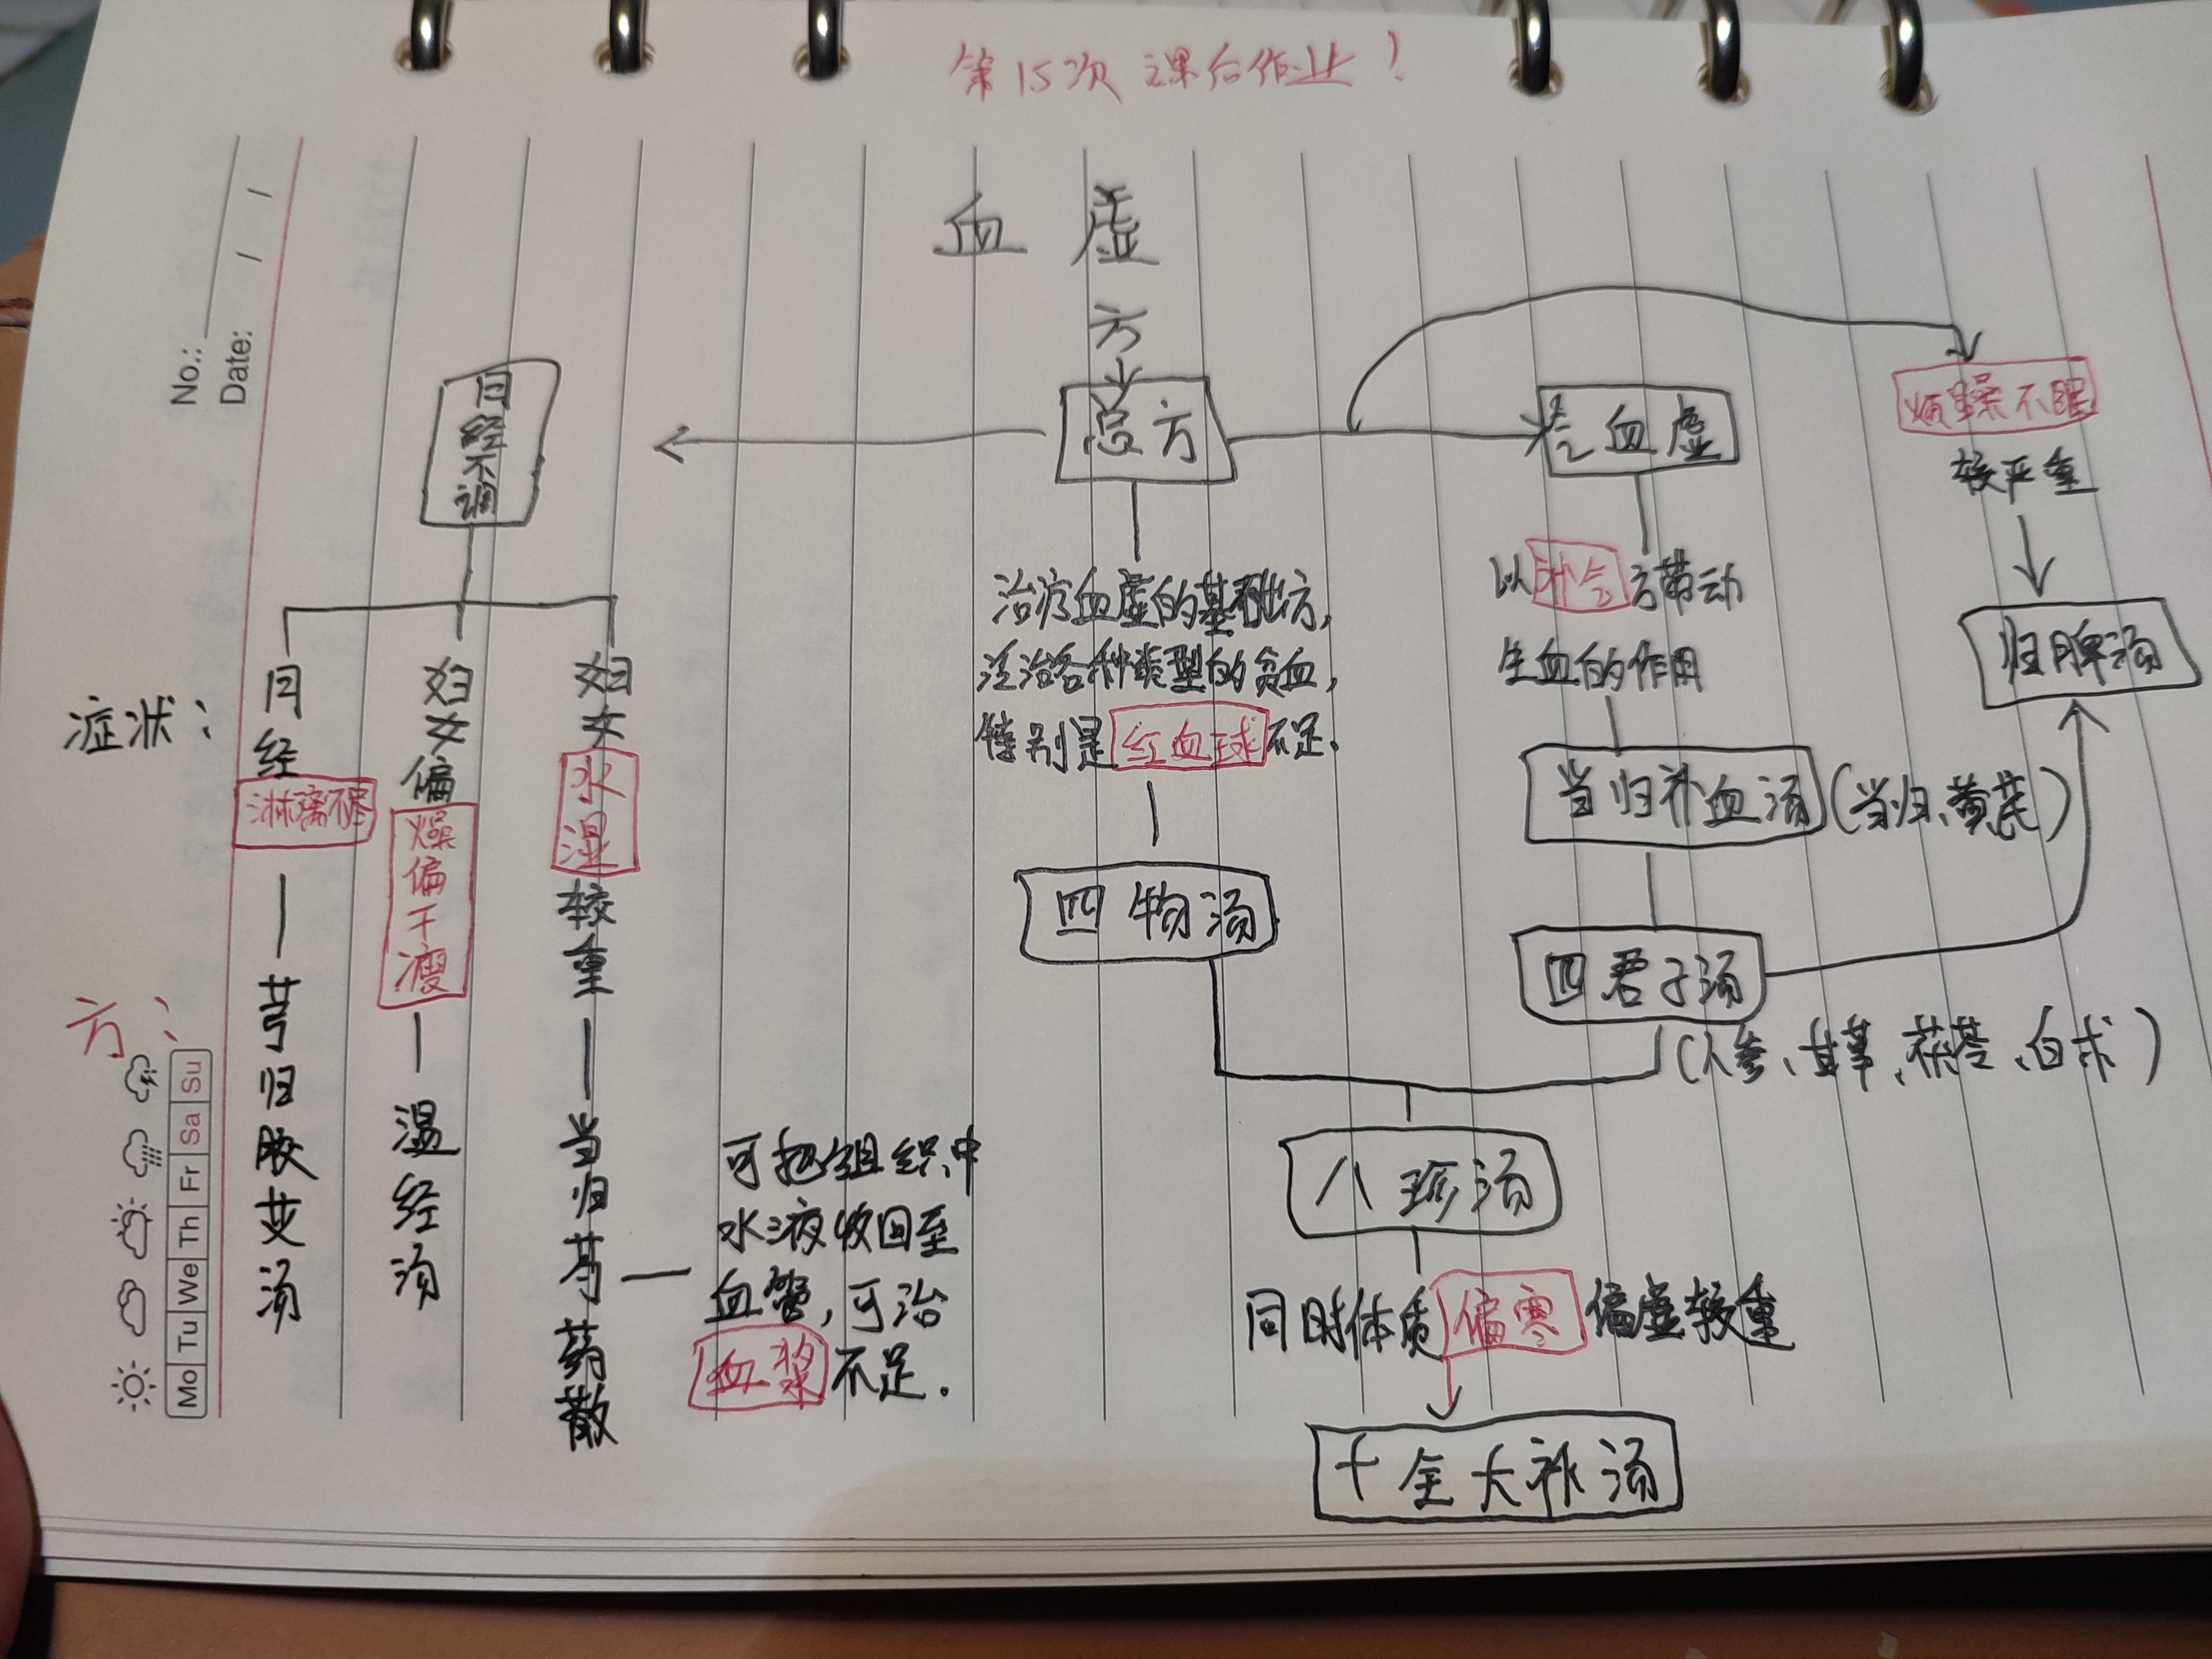 第15次 课后作业！
No.:
Date: / /
血虚
方
总方
月经不调
气血虚
烦躁不眠
较严重
归脾汤
治疗血虚的基础方，
泛治各种类型的贫血，
特别是红血球不足.
四物汤
以补气方带动
生血的作用
当归补血汤(当归、黄芪)
四君子汤
(人参、甘草、茯苓、白术)
八珍汤
同时体质偏寒偏虚较重
十全大补汤
症状：
月经淋漓不尽
妇女偏燥偏干瘦
妇女水湿较重
方：
芎归胶艾汤
温经汤
当归芍药散
可把组织中
水液收回至
血管，可治
血浆不足.
Mo Tu We Th Fr Sa Su